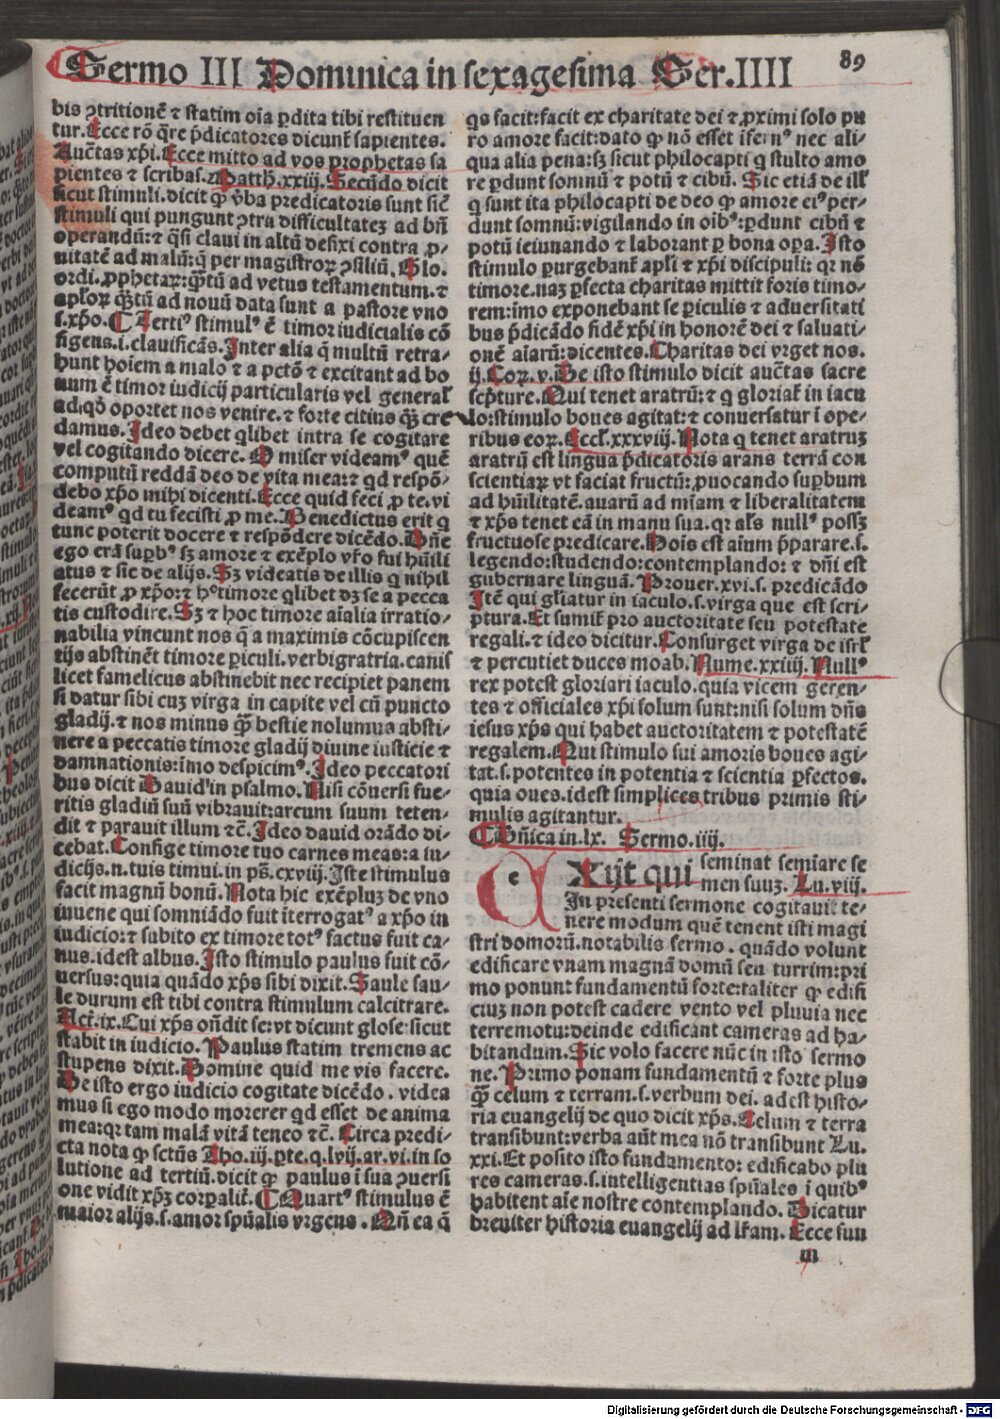 Sermo III Dominica in sexagesima Ser.IIII
89
bis ↄtritionē ⁊ statim oīa ꝑdita tibi restituen
tur. Ecce rō q̄re p̄dicatores dicunt᷑ sapientes.
Auctas xp̄i. Ecce mitto ad vos prophetas sa
pientes ⁊ scribas. Matth.xxiij. Secūdo dicit
sicut stimuli. dicit ꝙ v̄ba predicatoris sunt sic̄
stimuli qui pungunt ↄtra difficultateꝫ ad bn̄
operandū: ⁊ q̄si claui in altū defixi contra ꝓ-
nitatē ad malū: q̄ per magistroꝝ ↄsiliū. Glo.
ordi. ꝓphetaꝝ: q̄tū ad vetus testamentum. ⁊
aploꝝ q̄tū ad nouū data sunt a pastore vno
s.xp̄o. ¶ Tertiꝰ stimulꝰ ē timor iudicialis cō
figens .i. clauificās. Inter alia q̄ multū retra-
hunt hoīem a malo ⁊ a pctō ⁊ excitant ad bo
num ē timor iudicij particularis vel generał
ad qd̄ oportet nos venire. ⁊ forte citius q̄ꝫ cre
damus. Ideo debet qlibet intra se cogitare
vel cogitando dicere. O miser videamꝰ quē
computū reddā deo de vita mea: ⁊ qd respō-
debo xp̄o mihi dicenti. Ecce quid feci ꝓ te. vi
deamꝰ qd tu fecisti ꝓ me. Benedictus erit q
tunc poterit docere ⁊ respōdere dicēdo. Dn̄e
ego erā suꝑbꝰ sꝫ amore ⁊ exēplo vr̄o fui hūili
atus ⁊ sic de alijs. Sꝫ videatis de illis q nihil
fecerūt ꝓ xp̄o: ⁊ hꝰ timore qlibet dꝫ se a pecca
tis custodire. Sꝫ ⁊ hoc timore aīalia irratio-
nabilia vincunt nos q̄ a maximis cōcupiscen
tijs abstinēt timore ꝑiculi. verbigratria. canis
licet famelicus abstinebit nec recipiet panem
si datur sibi cuꝫ virga in capite vel cū puncto
gladij. ⁊ nos minus q̄ꝫ bestie nolumus absti-
nere a peccatis timore gladij diuine iusticie ⁊
damnationis: īmo despicimꝰ. Ideo peccatori
bus dicit Dauid' in psalmo. Nisi cōuersi fue-
ritis gladiū suū vibrauit: arcum suum teten-
dit ⁊ parauit illum ⁊c̄. Ideo dauid orādo di-
cebat. Confige timore tuo carnes meas: a iu-
dicijs.n.tuis timui. in ps̄. cxviij. Iste stimulus
facit magnū bonū. Nota hic exēpluꝫ de vno
iuuene qui somniādo fuit īterrogatꝰ a xp̄o in
iudicio: ⁊ subito ex timore totꝰ factus fuit ca-
nus. idest albus. Isto stimulo paulus fuit cō-
uersus: quia quādo xp̄s sibi dixit. Saule sau-
le durum est tibi contra stimulum calcitrare.
Act.ix. Cui xp̄s on̄dit se: vt dicunt glose: sicut
stabit in iudicio. Paulus statim tremens ac
stupens dixit. Domine quid me vis facere.
De isto ergo iudicio cogitate dicēdo. videa
mus si ego modo morerer qd esset de anima
mea: qꝛ tam malā vitā teneo ⁊c̄. Circa predi-
cta nota ꝙ sctūs Tho.iij.pte.q.lvij.ar.vi. in so
lutione ad tertiū. dicit ꝙ paulus ī sua ↄuersi
one vidit xp̄ꝫ corꝑalit᷑. ¶ Quartꝰ stimulus ē
maior alijs.s. amor spūalis vrgens. Nū ea q̄
qs facit: facit ex charitate dei ⁊ ꝓximi solo pu
ro amore facit: dato ꝙ nō esset īfernꝰ nec ali-
qua alia pena: sꝫ sicut philocapti q stulto amo
re ꝑdunt somnū ⁊ potū ⁊ cibū. Sic etiā de illꝭ
q sunt ita philocapti de deo ꝙ amore eiꝰ per-
dunt somnū: vigilando in oībꝰ: ꝑdunt cibū ⁊
potū ieiunando ⁊ laborant ꝑ bona oꝑa. Isto
stimulo ꝑurgebant᷑ apl̄i ⁊ xp̄i discipuli: qꝛ nō
timore. naꝫ ꝑfecta charitas mittit foris timo-
rem: imo exponebant se ꝑiculis ⁊ aduersitati
bus p̄dicādo fidē xp̄i in honorē dei ⁊ saluati-
onē aīarū: dicentes. Charitas dei vrget nos.
ij. Coꝝ. v. De isto stimulo dicit auctas sacre
scp̄ture. Qui tenet aratrū: ⁊ q gloriat᷑ in iacu
lo: stimulo boues agitat: ⁊ conuersatur ī ope-
ribus eoꝝ. Eccl̄.xxxviij. Nota q tenet aratruꝫ
aratrū est lingua p̄dicatoris arans terrā con
scientiaꝝ vt faciat fructū: ꝓuocando suꝑbum
ad hūilitatē. auarū ad mīam ⁊ liberalitatem
⁊ xp̄s tenet eā in manu sua. qꝛ al̄s nullꝰ possꝫ
fructuose predicare. Hoīs est aīum p̄parare. s.
legendo: studendo: contemplando: ⁊ dn̄i est
gubernare linguā. Prouer.xvi.s. predicādo
Itē qui gl̄iatur in iaculo. s. virga que est scri-
ptura. Et sumit᷑ pro auctoritate seu potestate
regali. ⁊ ideo dicitur. Consurget virga de isrl̄
⁊ percutiet duces moab. Nume.xxiiij. Nullꝰ
rex potest gloriari iaculo. quia vicem geren-
tes ⁊ officiales xp̄i solum sunt: nisi solum dn̄s
iesus xp̄s qui habet auctoritatem ⁊ potestatē
regalem. Qui stimulo sui amoris boues agi-
tat. s. potentes in potentia ⁊ scientia ꝑfectos.
quia oues. idest simplices tribus primis sti-
mulis agitantur.
¶ Dn̄ica in.lx. Sermo.iiij.
e Xijt qui seminat semīare se
men suuꝫ. Lu.viij.
In presenti sermone cogitaui: te-
nere modum quē tenent isti magi
stri domorū. notabilis sermo. quādo volunt
edificare vnam magnā domū seu turrim: pri
mo ponunt fundamentū forte: taliter ꝙ edifi
ciuꝫ non potest cadere vento vel pluuia nec
terremotu: deinde edificant cameras ad ha-
bitandum. Sic volo facere nūc in isto sermo
ne. Primo ponam fundamentū ⁊ forte plus
q̄ꝫ celum ⁊ terram. s. verbum dei. adest histo-
ria euangelij de quo dicit xp̄s. Celum ⁊ terra
transibunt: verba aūt mea nō transibunt Lu.
xxi. Et posito isto fundamento: edificabo plu
res cameras. s. intelligentias spūales ī quibꝰ
habitent aīe nostre contemplando. Dicatur
breuiter historia euangelij ad lr̄am. Ecce sun
m
Digitalisierung gefördert durch die Deutsche Forschungsgemeinschaft - DFG